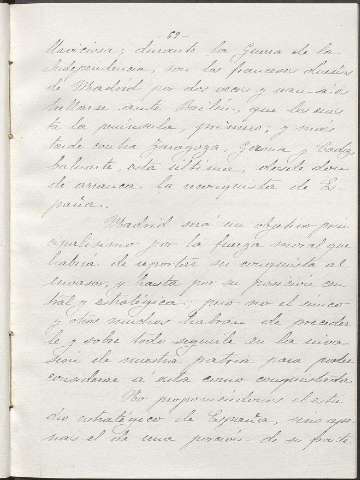 - 69 -
Unciosa; durante la Guerra de la
Independencia, son los franceses dueños
de Madrid por dos veces y van á es-
trellarse ante Bailén, que les
ta la península, primero, y mas
tarde contra Zaragoza, Gerona y Cadiz
baluarte, esta última, desde don-
de arranca la reconquista de Es-
paña.
Madrid será un objetivo prin-
cipalísimo por la fuerza moral que
habria de reportar su conquista al
invasor, y hasta por su posición cen-
tral y estratégica; pero no el único
y otros muchos habran de preceder-
le y sobre todo seguirle en la inva-
sión de nuestra patria para poder
considerar a esta como conquistada.
No proponiendonos el estu-
dio estratégico de España, sino ape-
nas el de una porción de su fronte